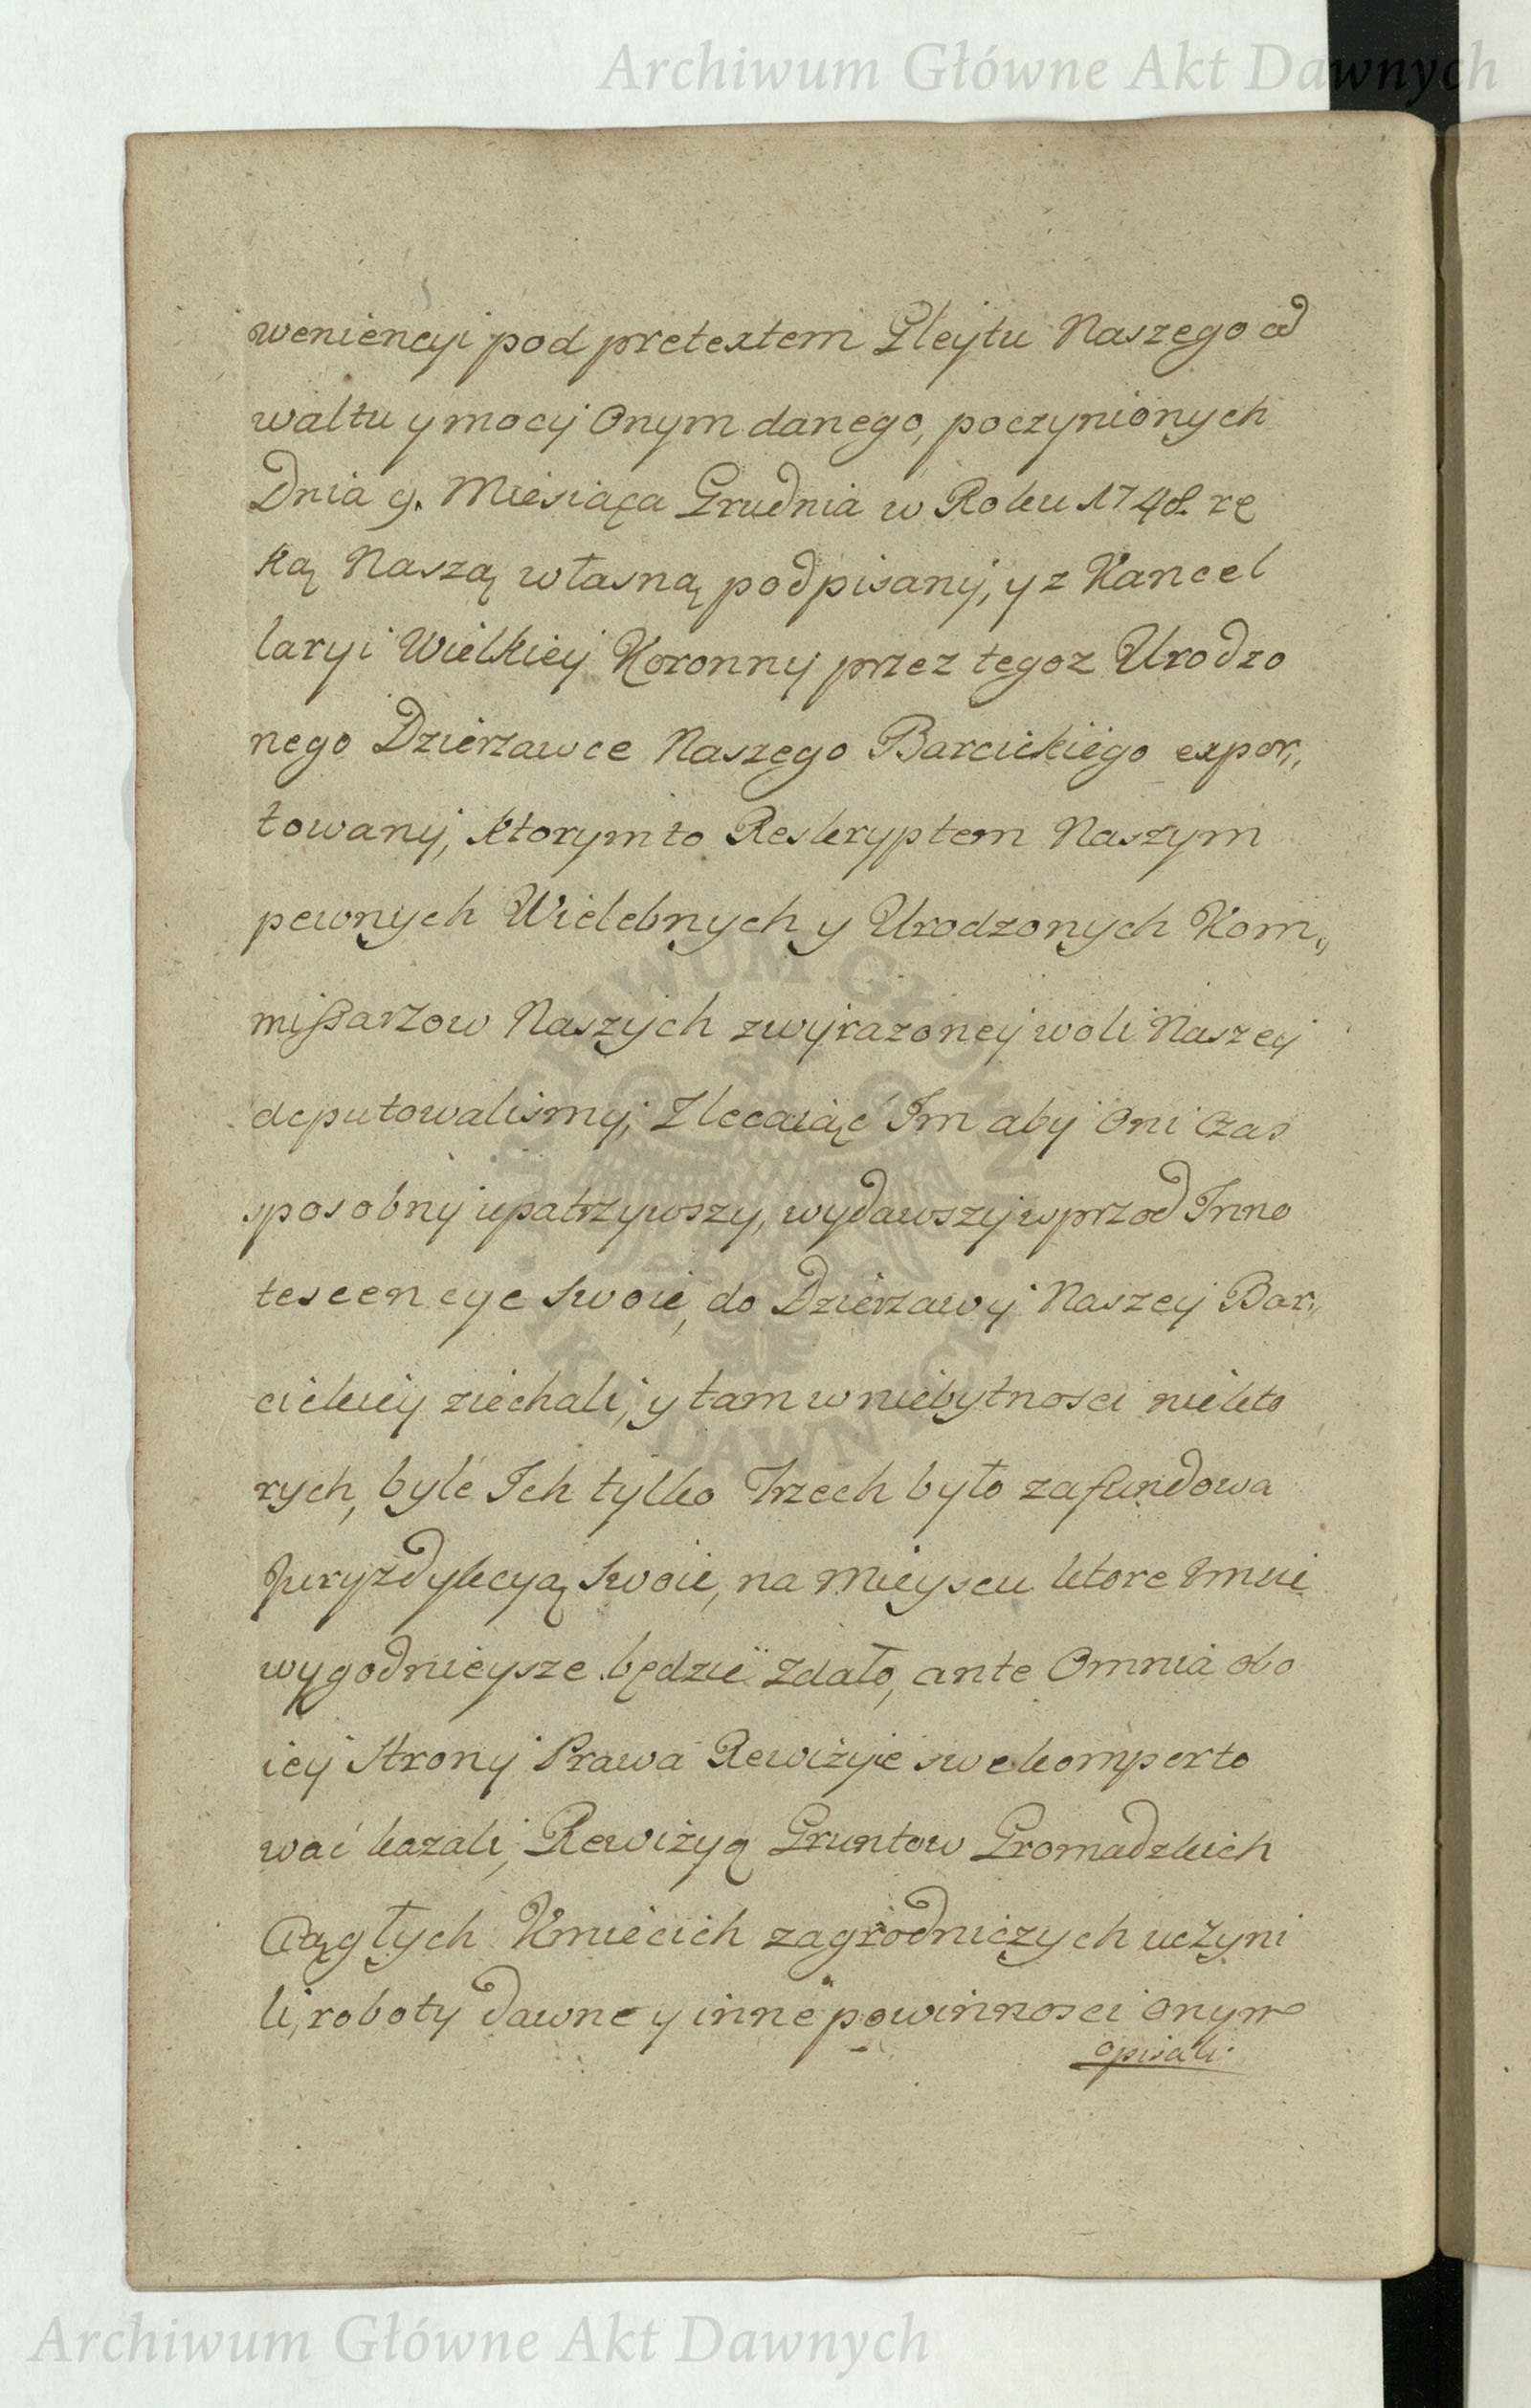 Archiwum Główne Akt Dawnych
weniencyi pod pretextem Gleytu Naszego od
waltu y mocy Onym danego, poczynionych
Dnia 9. Miesiąca Grudnia w Roku 1748. rę
ką Naszą własną podpisany, y z Kancel
laryi Wielkiey Koronny przez tegoz Urodzo
nego Dzierzawce Naszego Barcickiego expor,,
towany, ktorymto Reskryptem Naszym
pewnych Wielebnych y Urodzonych Kom,,
mißarzow Naszych zwyrazoney woli Naszey
deputowalismy, Zlecaiąc Im aby Oni Czas
sposobny upatrzywszy, wydawszy wprzod Inno
tescencye swoie, do Dzierzawy Naszey Bar,,
cickiey ziechali, y tam w niebytnosci niekto
rych, byle Ich tylko Trzech było zafundowa
Juryzdykcyą swoie, na Mieyscu ktore
wygodnieysze będzie Zdało, ante Omnia obo
iey Strony Prawa Rewizyie swe komporto
wać kazali, Rewizyą Gruntow Gromadzkich
Ciągłych Kmiecich zagrodniczych uczyni
li, roboty dawne y inne powinnosci onym
opisali
ARCHIWUM GŁÓWNE · AKT DAWNYCH ·
Archiwum Główne Akt Dawnych